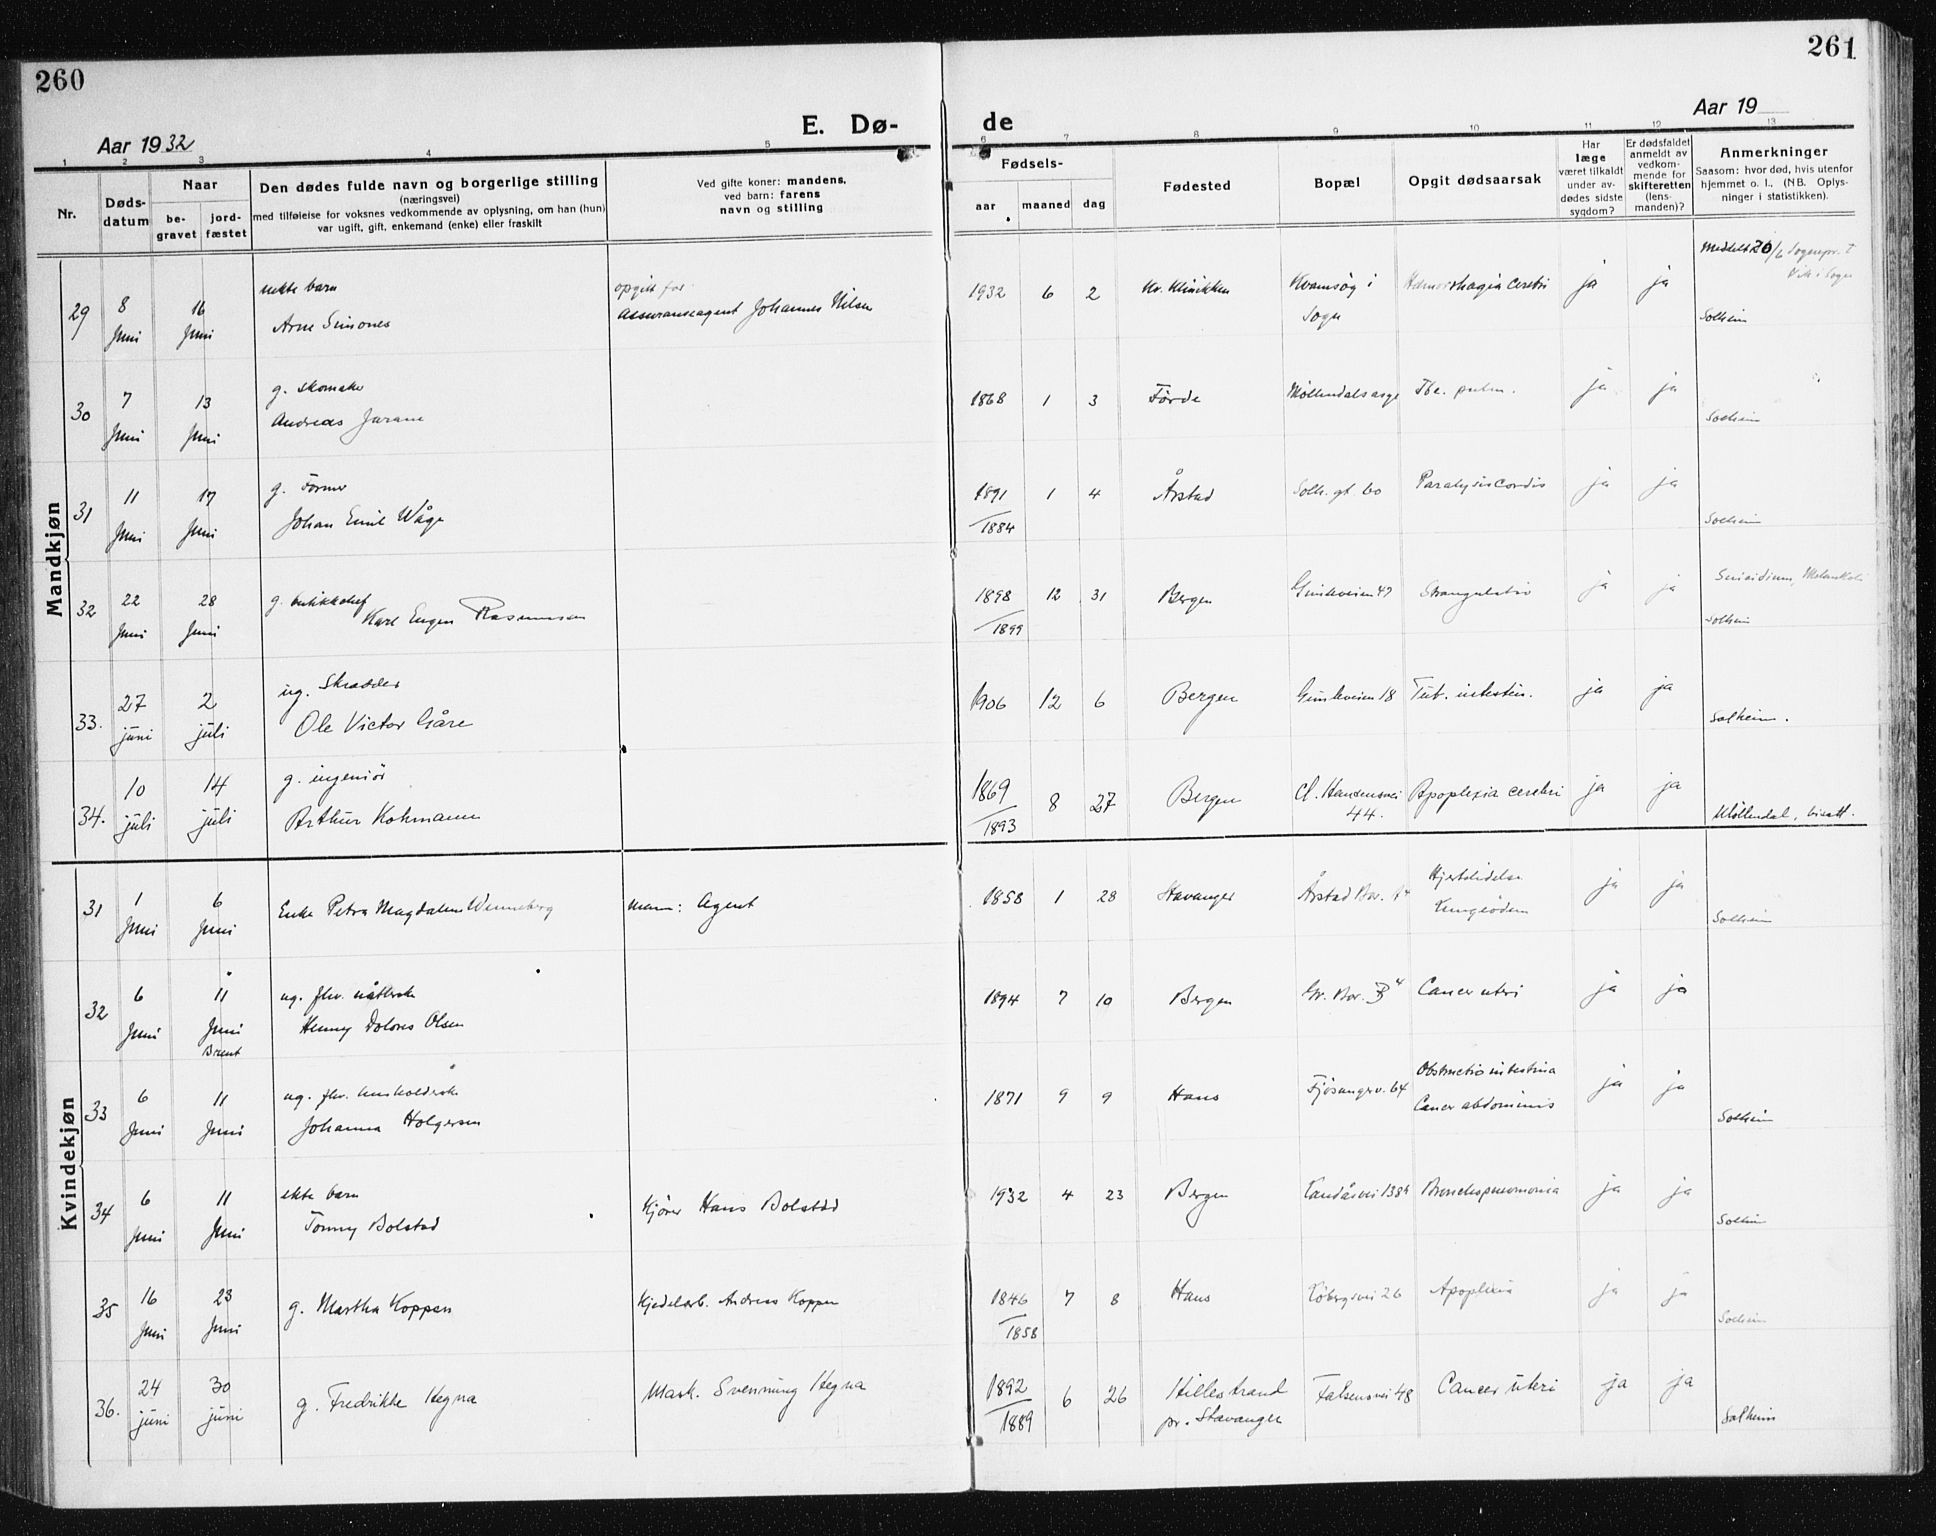 260
261
Aar 1932
E. Dø-
de
Aar 19
1 2 3 4 5 6 7 8 9 10 11 12 13
Nr.
Døds-
datum
Naar
be-
gravet
jord-
fæstet
Den dødes fulde navn og borgerlige stilling
(næringsvei)
med tilføielse for voksnes vedkommende av oplysning, om han (hun)
var ugift, gift, enkemand (enke) eller fraskilt
Ved gifte koner: mandens,
ved barn: farens
navn og stilling
Fødsels-
aar maaned dag
Fødested
Bopæl
Opgit dødsaarsak
Har
læge
været tilkaldt
under av-
dødes sidste
sygdom?
Er dødsfaldet
anmeldt av
vedkom-
mende for
skifteretten
(lens-
manden)?
Anmerkninger
Saasom: hvor død, hvis utenfor
hjemmet o. l., (NB. Oplys-
ninger i statistikken).
Mandkjøn
29 8 Juni 16 Juni
uekte barn
Arne Simones
opgitt far
Assuranseagent Johannes Nilsen
1932 6 2 Kv. Klinikken Kvamsøy i
Sogn
Hæmorrhagia Cerebri ja ja
Meddelt 20/6 Sognepr. i
Vik i Sogn
Solheim
30 7 Juni 13 Juni
g. skomaker
Andreas
1868 1 3 Førde Møllendalsvge Tbc. pulm. ja ja
Solheim
31 11 Juni 17 Juni
g. Former
Johan Emil Våge
1891 1 4 Årstad Solh. gt. 60 Paralysis Cordis ja ja
/1884
Solheim
32 22 Juni 28 Juni
g. butikkchef
Karl Eugen Rasmussen
1898 12 31 Bergen Gimleveien 47 Strangulatio ja ja
/1899
Suicidium, Melankoli
Solheim
33. 27 juni 2 juli
ug. Skrædder
Ole Victor Gåre
1906 12 6 Bergen Gimleveien 18 Tub. intestin. ja ja
Solheim.
34. 10 juli 14 juli
g. ingeniør
Arthur Kohmann
1869 8 27 Bergen Cl. Hansensvei
44.
/1893
Apoplexia cerebri ja ja
Møllendal, bisatt.
Kvindekjøn
31 1 Juni 6 Juni
Enke Petra Magdalene Wenneberg
mann: Agent
1858 1 28 Stavanger Årstad
Hjertelidelse
Lungeödem
ja ja
Solheim
32 6 Juni 11 Juni
Brent
ug. fhv. nåtlerske
Henny Dolores Olsen
1894 7 10 Bergen Cancer uteri ja ja
33 6 Juni 11 Juni
ug. fhv. husholderske
Johanna Holgersen
1871 9 9 Haus Fjösangerv. 64
Obstructio intestina
Cancer abdominis
ja ja
Solheim
34 6 Juni 11 Juni
ekte barn
Tonny Bolstad
Kjører Hans Bolstad
1932 4 23 Bergen Landåsvei Bronchopneumonia ja ja
Solheim
35 16 Juni 23 Juni
g. Martha Koppen
Kjedelarb. Andreas Koppen
1846 7 8 Haus Löbergsvei 26 Apoplexia ja ja
/1858
Solheim
36. 24 juni 30 juni
g. Fredrikke Hegna
Mask. Svenning Hegna
1892 6 26 Hillestrand
pr. Stavanger
/1889
Falsensvei 48 Cancer uteri ja ja
Solheim